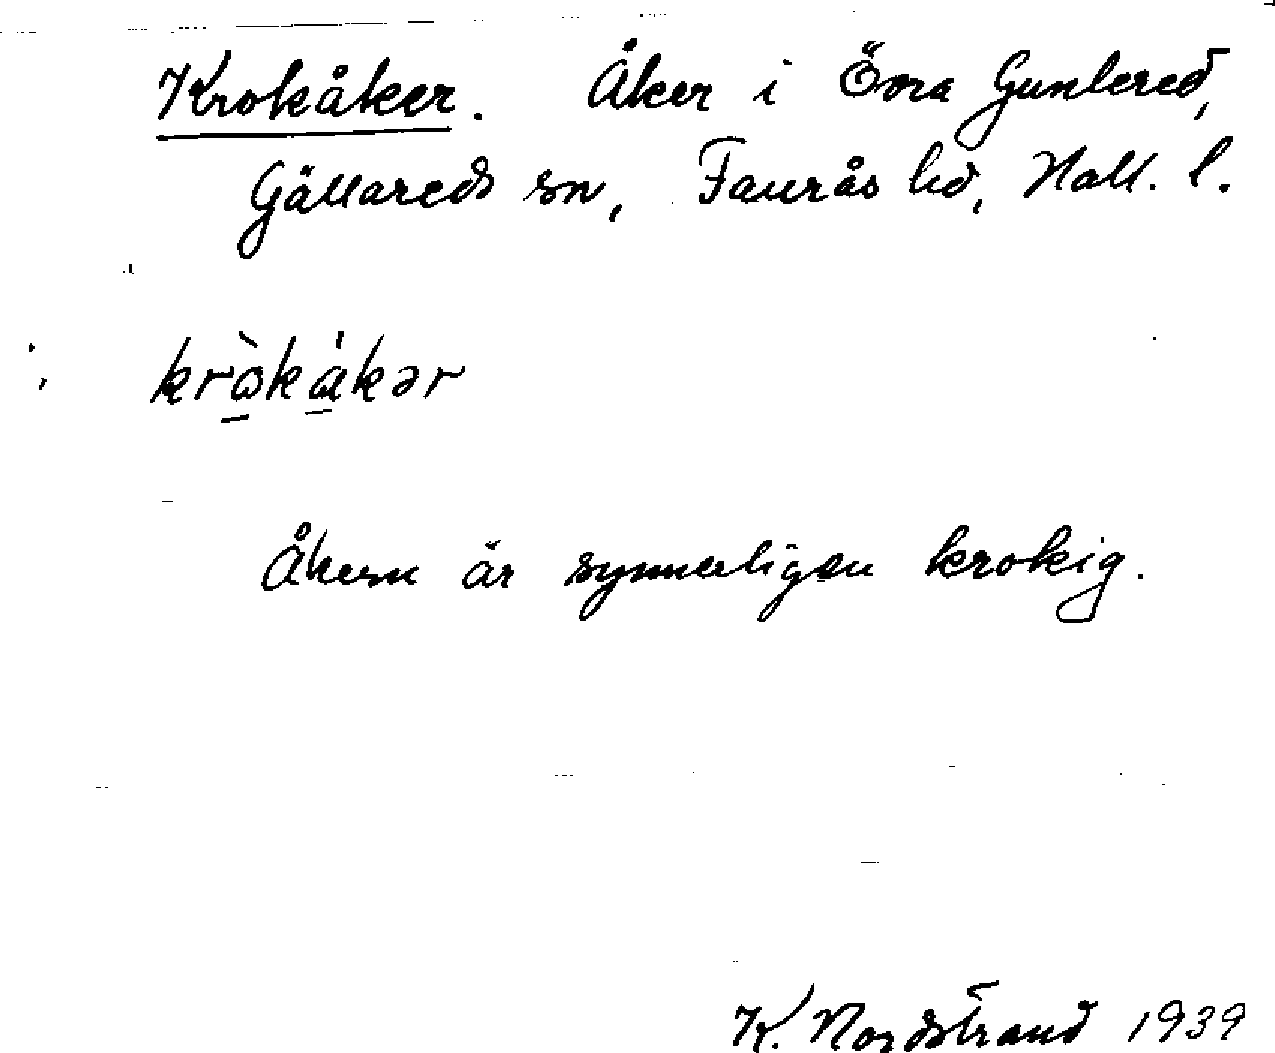 Krokåker. Åker i Övra Gunlered,
Gällareds sn, Faurås hd, Hall. l.
kròkákər
Åkern är synnerligen krokig.
K. Nordstrand 1939